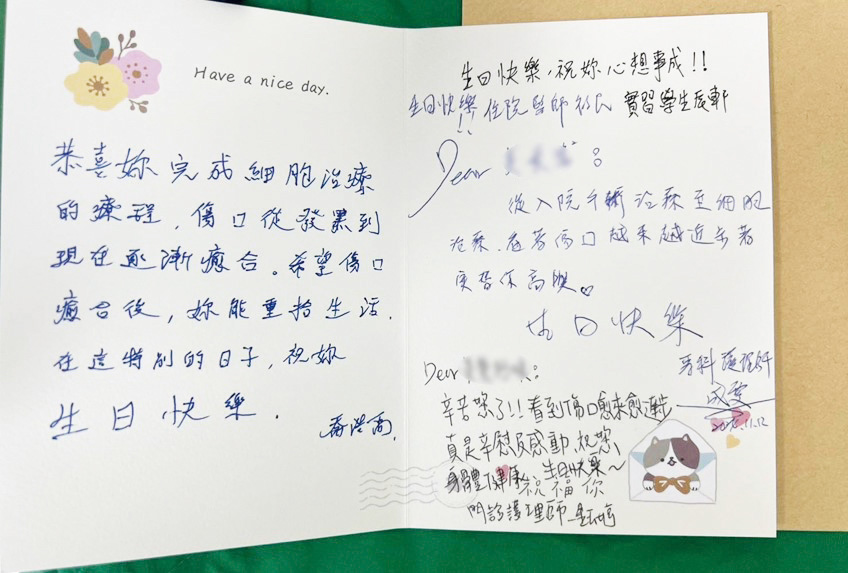 Have a nice day.
恭喜妳完成細胞治療
的療程，傷口從發黑到
現在逐漸癒合。希望傷口
癒合後，妳能重拾生活.
在這特別的日子，祝妳
生日快樂.
生日快樂，祝妳心想事成!!
生日快樂!! 住院醫師 實習學生
Dear :
從入院手術治療至細胞
治療，看著傷口越來越近
高興
生日快樂
Dear :
專科護理師
辛苦您了!! 看到傷口愈來愈進步
真是欣慰及感動，祝您
身體健康 生日快樂~
祝福你
門診護理師
11.12